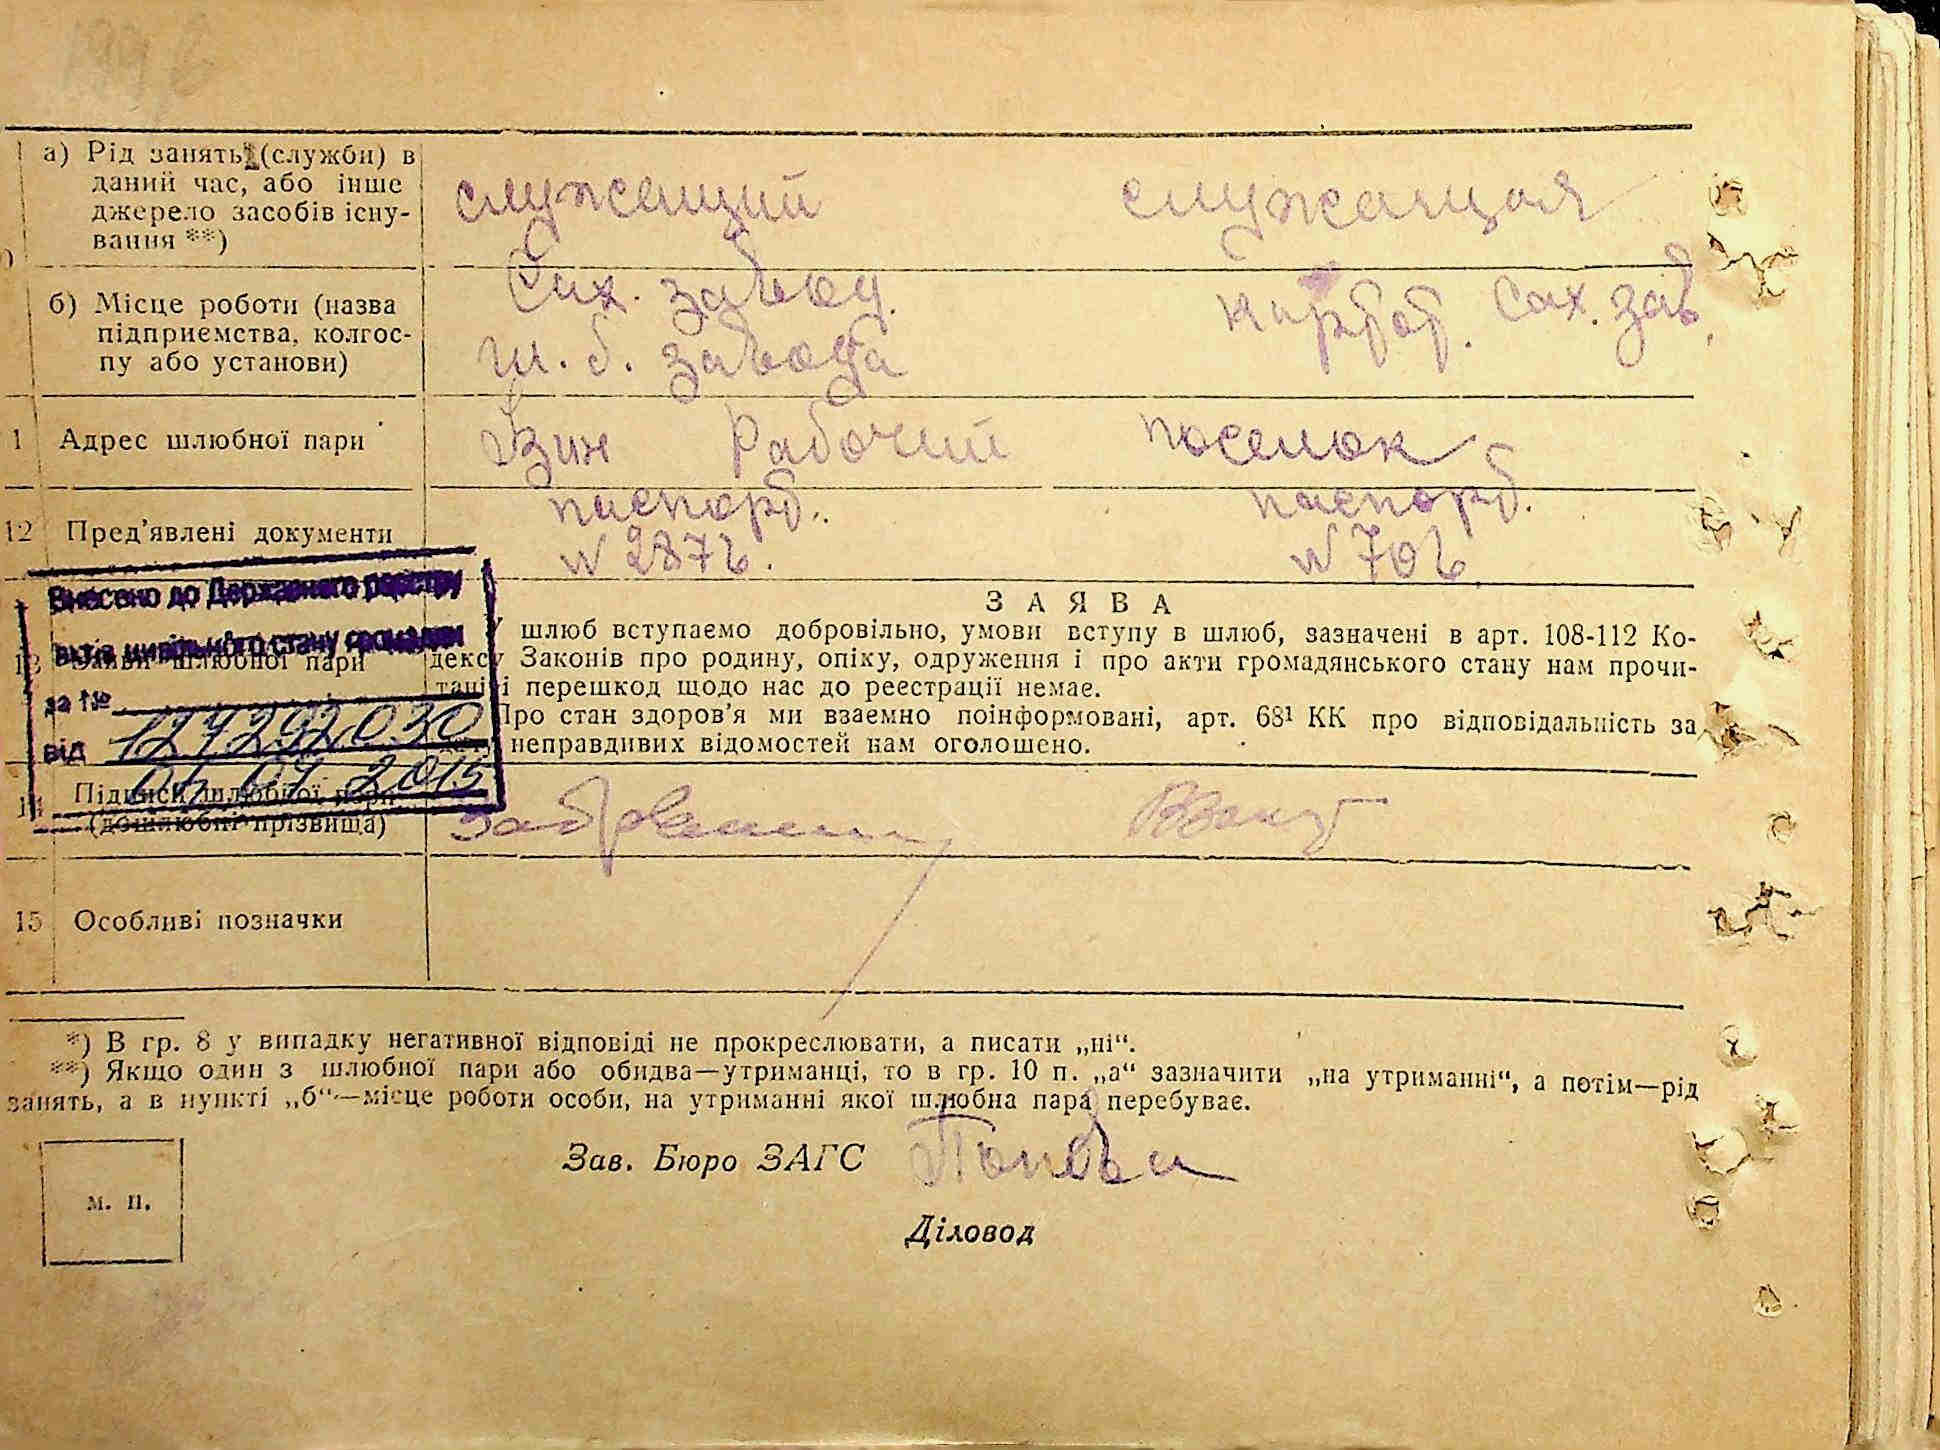 а) Рід занять (служби) в
даний час, або інше
джерело засобів існу-
вання **)
служащий
служащая
б) Місце роботи (назва
підприємства, колгос-
пу або установи)
Сах. завод.
ш. б. завода
Сах. зав.
1 Адрес шлюбної пари
Рабочий поселок
12 Пред'явлені документи
паспорт.
N 2876.
паспорт.
N 706
Внесено до Державного реєстру
актів цивільного стану громадян
за №
127292030
від
2015
13 Заяви шлюбної пари
ЗАЯВА
У шлюб вступаємо добровільно, умови вступу в шлюб, зазначені в арт. 108-112 Ко-
дексу Законів про родину, опіку, одруження і про акти громадянського стану нам прочи-
тані і перешкод щодо нас до реєстрації немає.
Про стан здоров'я ми взаємно поінформовані, арт. 68¹ КК про відповідальність за
дачу неправдивих відомостей нам оголошено.
14 Підписи шлюбної пари
(дошлюбні прізвища)
15 Особливі позначки
*) В гр. 8 у випадку негативної відповіді не прокреслювати, а писати „ні“.
**) Якщо один з шлюбної пари або обидва—утриманці, то в гр. 10 п. „а“ зазначити „на утриманні“, а потім—рід
занять, а в пункті „б“—місце роботи особи, на утриманні якої шлюбна пара перебуває.
Зав. Бюро ЗАГС
м. п.
Діловод